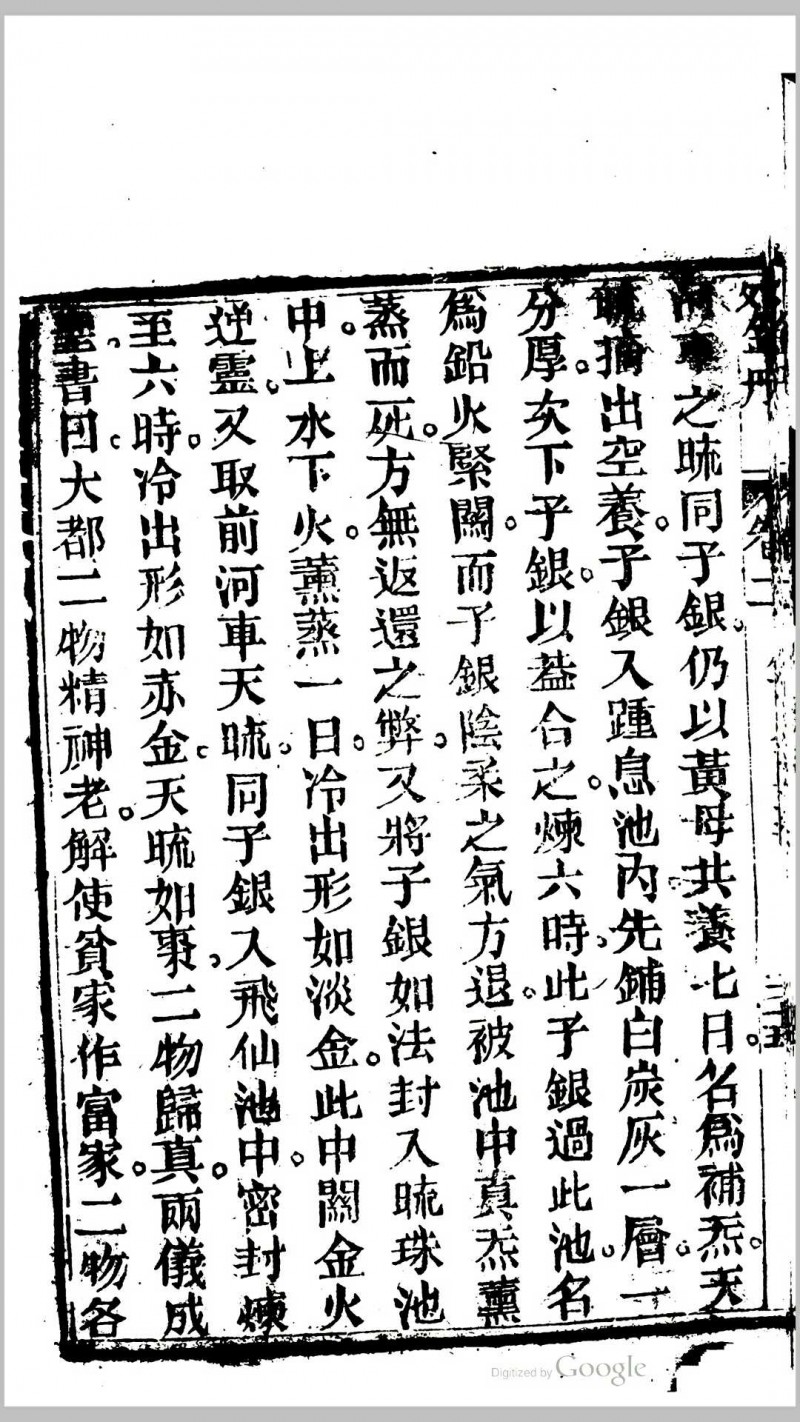 外金丹 卷二 二十五
河車之硫同子銀仍以黃母共養七日。名爲補炁。天
硫摘出空養。子銀入踵息池內。先鋪白炭灰一層。一
分厚。次下子銀。以葢合之。煉六時。此子銀過此池。名
爲鉛火緊關。而子銀陰柔之氣方退。被池中真炁薰
蒸而死。方無返還之弊。又將子銀如法封入硫珠池
中。上水下火。薰蒸一日。冷出形如淡金。此中關金火
逆靈。又取前河車天硫。同子銀入飛仙池中。密封煉
至六時。冷出形如赤金。天硫如棗。二物歸真。兩儀成
書曰。大都二物精神老。解使貧家作富家。二物各
Digitized by Google